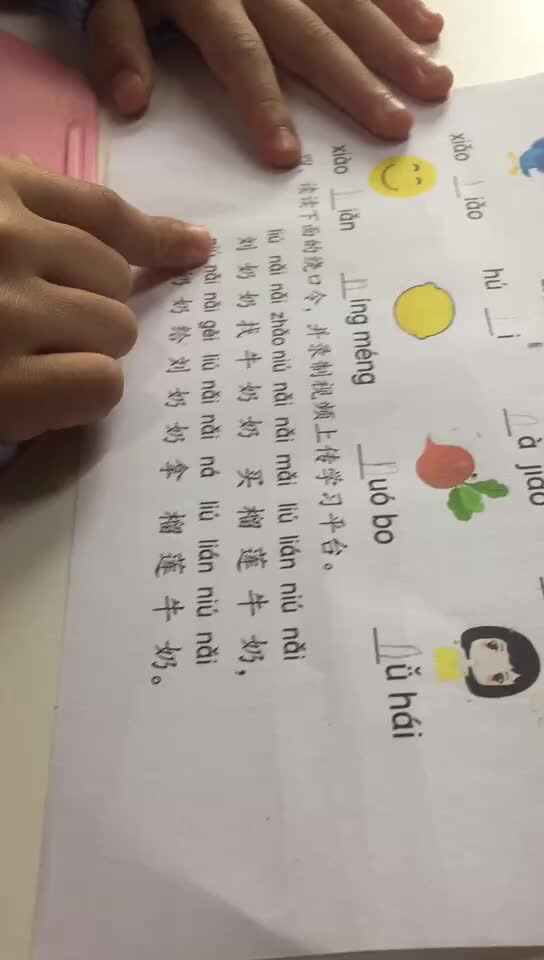 xiǎo __iǎo hú __i __à jiāo
xiào __iǎn __íng méng __uó bo __ǔ hái
读读下面的绕口令，并录制视频上传学习平台。
liú nǎi nǎi zhǎo niú nǎi nǎi mǎi liú lián niú nǎi
刘奶奶找牛奶奶 买榴莲牛奶，
nǎi nǎi gěi liú nǎi nǎi ná liú lián niú nǎi
奶奶给刘奶奶拿 榴莲牛奶。